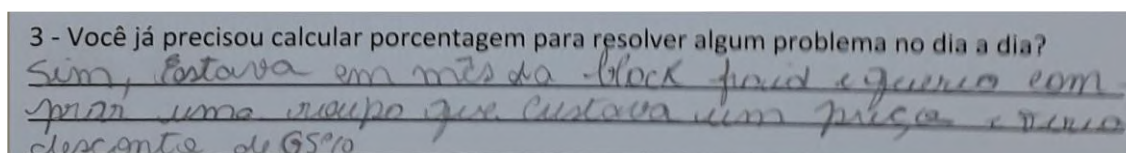 3 - Você já precisou calcular porcentagem para resolver algum problema no dia a dia?
Sim, Estava em mês da block fraid e queria com
prar uma roupa que custava um preço e
desconto de 65%